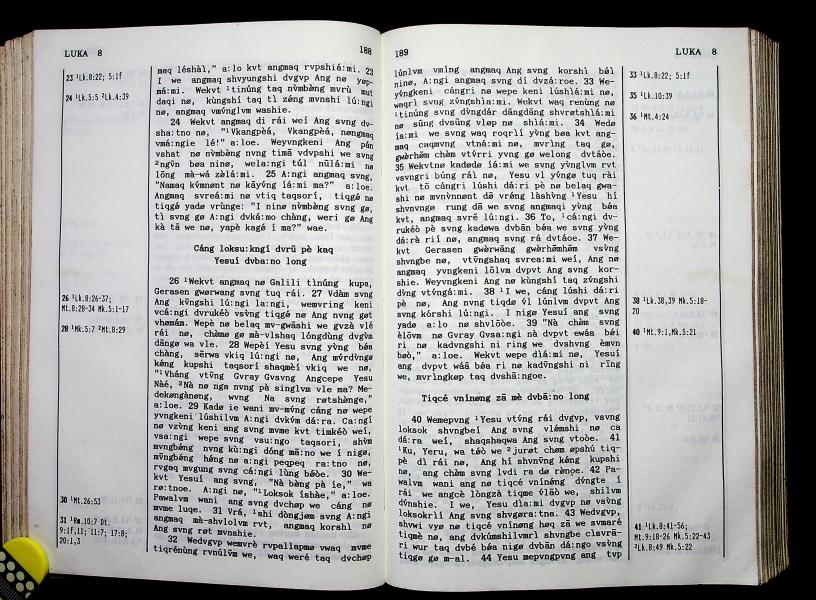 LUKA 8
188
23 ¹Lk.8:22; 5:1f
24 ¹Lk.5:5 ²Lk.4:39
26 ¹Lk.8:26-37;
Mt.8:28-34 Mk.5:1-17
28 ¹Mk.5:7 ²Mt.8:29
30 ¹Mt.26:53
31 ¹Rm.10:7 Dt.
9:1f,11; 11:7; 17:8;
20:1,3
maq léshàl," a:lo kvt angmaq rvpshiá:mi. 23
I we angmaq shvyungshi dvgvp Ang nø yøp-
má:mi. Wekvt ¹tinúng taq nv̀mbèng mvrù mut
daqi nø, kùngshí taq tì zéng mvnshì lú:ngi
nø, angmaq vmv́ngìvm washìe.
24 Wekvt angmaq di rái weí Ang svng dv-
sha:tno nø, "¹Vkangpèá, Vkangpèá, nøngmaq
vmá:ngìe lé!" a:loe. Weyvngkeni Ang pán
vshat nø nv̀mbèng nvng timā vdvpshì we svng
²ngv́n bøa ninø, wela:ngì túl nūlá:mi nø
lōng mà-wá zèlá:mi. 25 A:ngì angmaq svng,
"Namaq kv́mnønt nø kāyv́ng íá:mi ma?" a:loe.
Angmaq svreá:mi nø vtiq taqsorì, tiqgé nø
tiqgé yadø vrùnge: "I ninø nv̀mbèng svng gø,
tì svng gø A:ngì dvká:mo chàng, werì gø Ang
kà tā we nø, yapè kagé í ma?" wae.
Cáng loksu:kngí dvrū pè kaq
Yesuí dvba:no long
26 ¹Wekvt angmaq nø Galili tìnúng kupa,
Gerasen gwørwang svng tuq rái. 27 Vdàm svng
Ang kv̄ngshì lú:ngì la:ngì, wemvring keni
vcá:ngì dvrukéò vsv̀ng tiqgé nø Ang nvng gøt
vhømám. Wepè nø bølaq mv-gwāshì we gvzà vlé
rái nø, chèmø gø mà-vlshaq lóngdùng dvgv̀m
dāngø wa vle. 28 Wepèí Yesu svng yv̀ng bǿa
chàng, sērwa vkiq lú:ngì nø, Ang mv́rdv̀ngø
kéng kupshì taqsorì shaqmèí vkiq we nø,
"¹Vháng vtv̄ng Gvray Gvsvng Angcepe Yesu
Nàé, ²Nà nø nga nvng pà singlvm vle ma? Me-
dekøngànøng, wvng Na svng røtshènge,"
a:loe. 29 Kadø ìe wani mv-mv́ng cáng nø wepe
yvngkeni lúshìlvm A:ngì dvkv́m da:ra. Ca:ngí
nø vzv̀ng keni ang svng mvme kvt timkéò weí,
vsa:ngì wepe svng vsu:ngo taqsorì, shv̀m
mvngbǿng nvng kù:ngì dóng mā:no we í nigø,
mv̄ngbǿng héng nø a:ngì peqpeq ra:tno nø,
rvgaq mvgung svng cá:ngí lùng bǿòe. 30 We-
kvt Yesuí ang svng, "Nà bèng pà íe," wa
rø:tnoe. A:ngì nø, "¹Loksok íshàe," a:loe.
Pawalvm wani ang svng dvchøp we cáng nø
mvme luqe. 31 Vrá, ¹shì dòngjøm svng A:ngì
angmaq mà-shvlolvm rvt, angmaq korshì nø
Ang svng røt mvnshìe.
32 Wedvgvp wemvrè rvpallapmø vwaq mvme
tiqrénùng rvnúlv̄m we, waq weré taq dvchøp
189
LUKA 8
lúnlvm vmíng angmaq Ang svng korshì bǿl
ninø, A:ngì angmaq svng dí dvzá:roe. 33 We-
yv́ngkeni cángrì nø wepe keni lúshlá:mi nø,
waqrì svng zv́ngshìa:mi. Wekvt waq renùng nø
¹tìnúng svng dv̀ngdár dāngdāng shvrøtshlá:mi
nø sūng dvsūng vløp nø shlá:mi. 34 Wedø
ía:mi we svng waq roqrlí yv̀ng bøa kvt ang-
maq caqmvng vtná:mi nø, mvrìng taq gø,
gwørhøm chøm vtv́rrí yvng gø welong dvtáòe.
35 Wekvtnø kadødø íá:mi we svng yv̀nglvm rvt
vsvngrì búng rál nø, Yesu vl yv́ngø tuq rài
kvt tō cángrì lúshì dá:rì pè nø bølaq gwa-
shì nø mvnv̀nnønt dā vréng làshv̀ng ¹Yesu hí
shvnvngø rung dā we svng angmaqì yv̀ng béa
kvt, angmaq svrē lú:ngì. 36 To, ¹cá:ngì dv-
rukéò pè svng kadøwa dvbān bǿa we svng yv̀ng
dá:rà rìí nø, angmaq svng rá dvtáoe. 37 We-
kvt Gerasen gwèrwāng gwèrhømhøm vsv̀ng
shvngbe nø, vtv̄ngshaq svrea:mi weí, Ang nø
angmaq yvngkeni lōlvm dvpvt Ang svng kor-
shìe. Weyvngkeni Ang nø kùngshí taq zv́ngshì
dv̀ng vtv́ngá:mi. 38 ¹I we, cáng lúshì dá:rì
pè nø, Ang nvng tiqdø v́l lúnlvm dvpvt Ang
svng kórshì lú:ngì. I nigø Yesuí ang svng
yadø a:lo nø shvlōòe. 39 "Nà chèm svng
èlōvm nø Gvray Gvsa:ngì nà dvpvt ewáa béì
rì nø kadvngshì ni ring we dvshvng èmvn
bøò," a:loe. Wekvt wepe dlá:mi nø, Yesuí
ang dvpvt wáā bǿa rì nø kadv̄ngshì nì rìng
we, mvrìngkøp taq dvshā:ngoe.
Tiqcé vnínøng zā mè dvbā:no long
40 Wemepvng ¹Yesu vtv́ng rái dvgvp, vsvng
loksok shvngbeí Ang svng vlémshì nø ca
dá:ra weí, shaqshaqwa Ang svng vtoòe. 41
¹Ku, Yeru, wa tǿò we ²jurøt chøm øpshú tiq-
pè dì rái nø, Ang hí shvnv̄ng kéng kupshì
nø, ang chèm svng lvdí ra dø rènge. 42 Pa-
walvm wani ang nø tiqcé vnínéng dv́ngte í
rái we angcè lòngzà tiqme v́lāò we, shìlvm
dv́nshìe. I we, Yesu dla:mi dvgvp nø vsvng
loksokrìí Ang svng shvgøra:tna. 43 Wedvgvp,
shvwì vyø nø tiqcé vnínøng høq zā we svmaré
tiqmè nø, ang dvkúmshìlvmrì shvngbe clsvrā-
rì wur taq dvbé béa nigø dvbān dá:ngo vsv̀ng
tiqgø gø m-al. 44 Yesu mepvngpvng ang tvp
33 ¹Lk.8:22; 5:1f
35 ¹Lk.10:39
36 ¹Mt.4:24
38 ¹Lk.38,39 Mk.5:18-
20
40 ¹Mt.9:1,Mk.5:21
41 ¹Lk.8:41-56;
Mt.9:18-26 Mk.5:22-43
²Lk.8:49 Mk.5:22